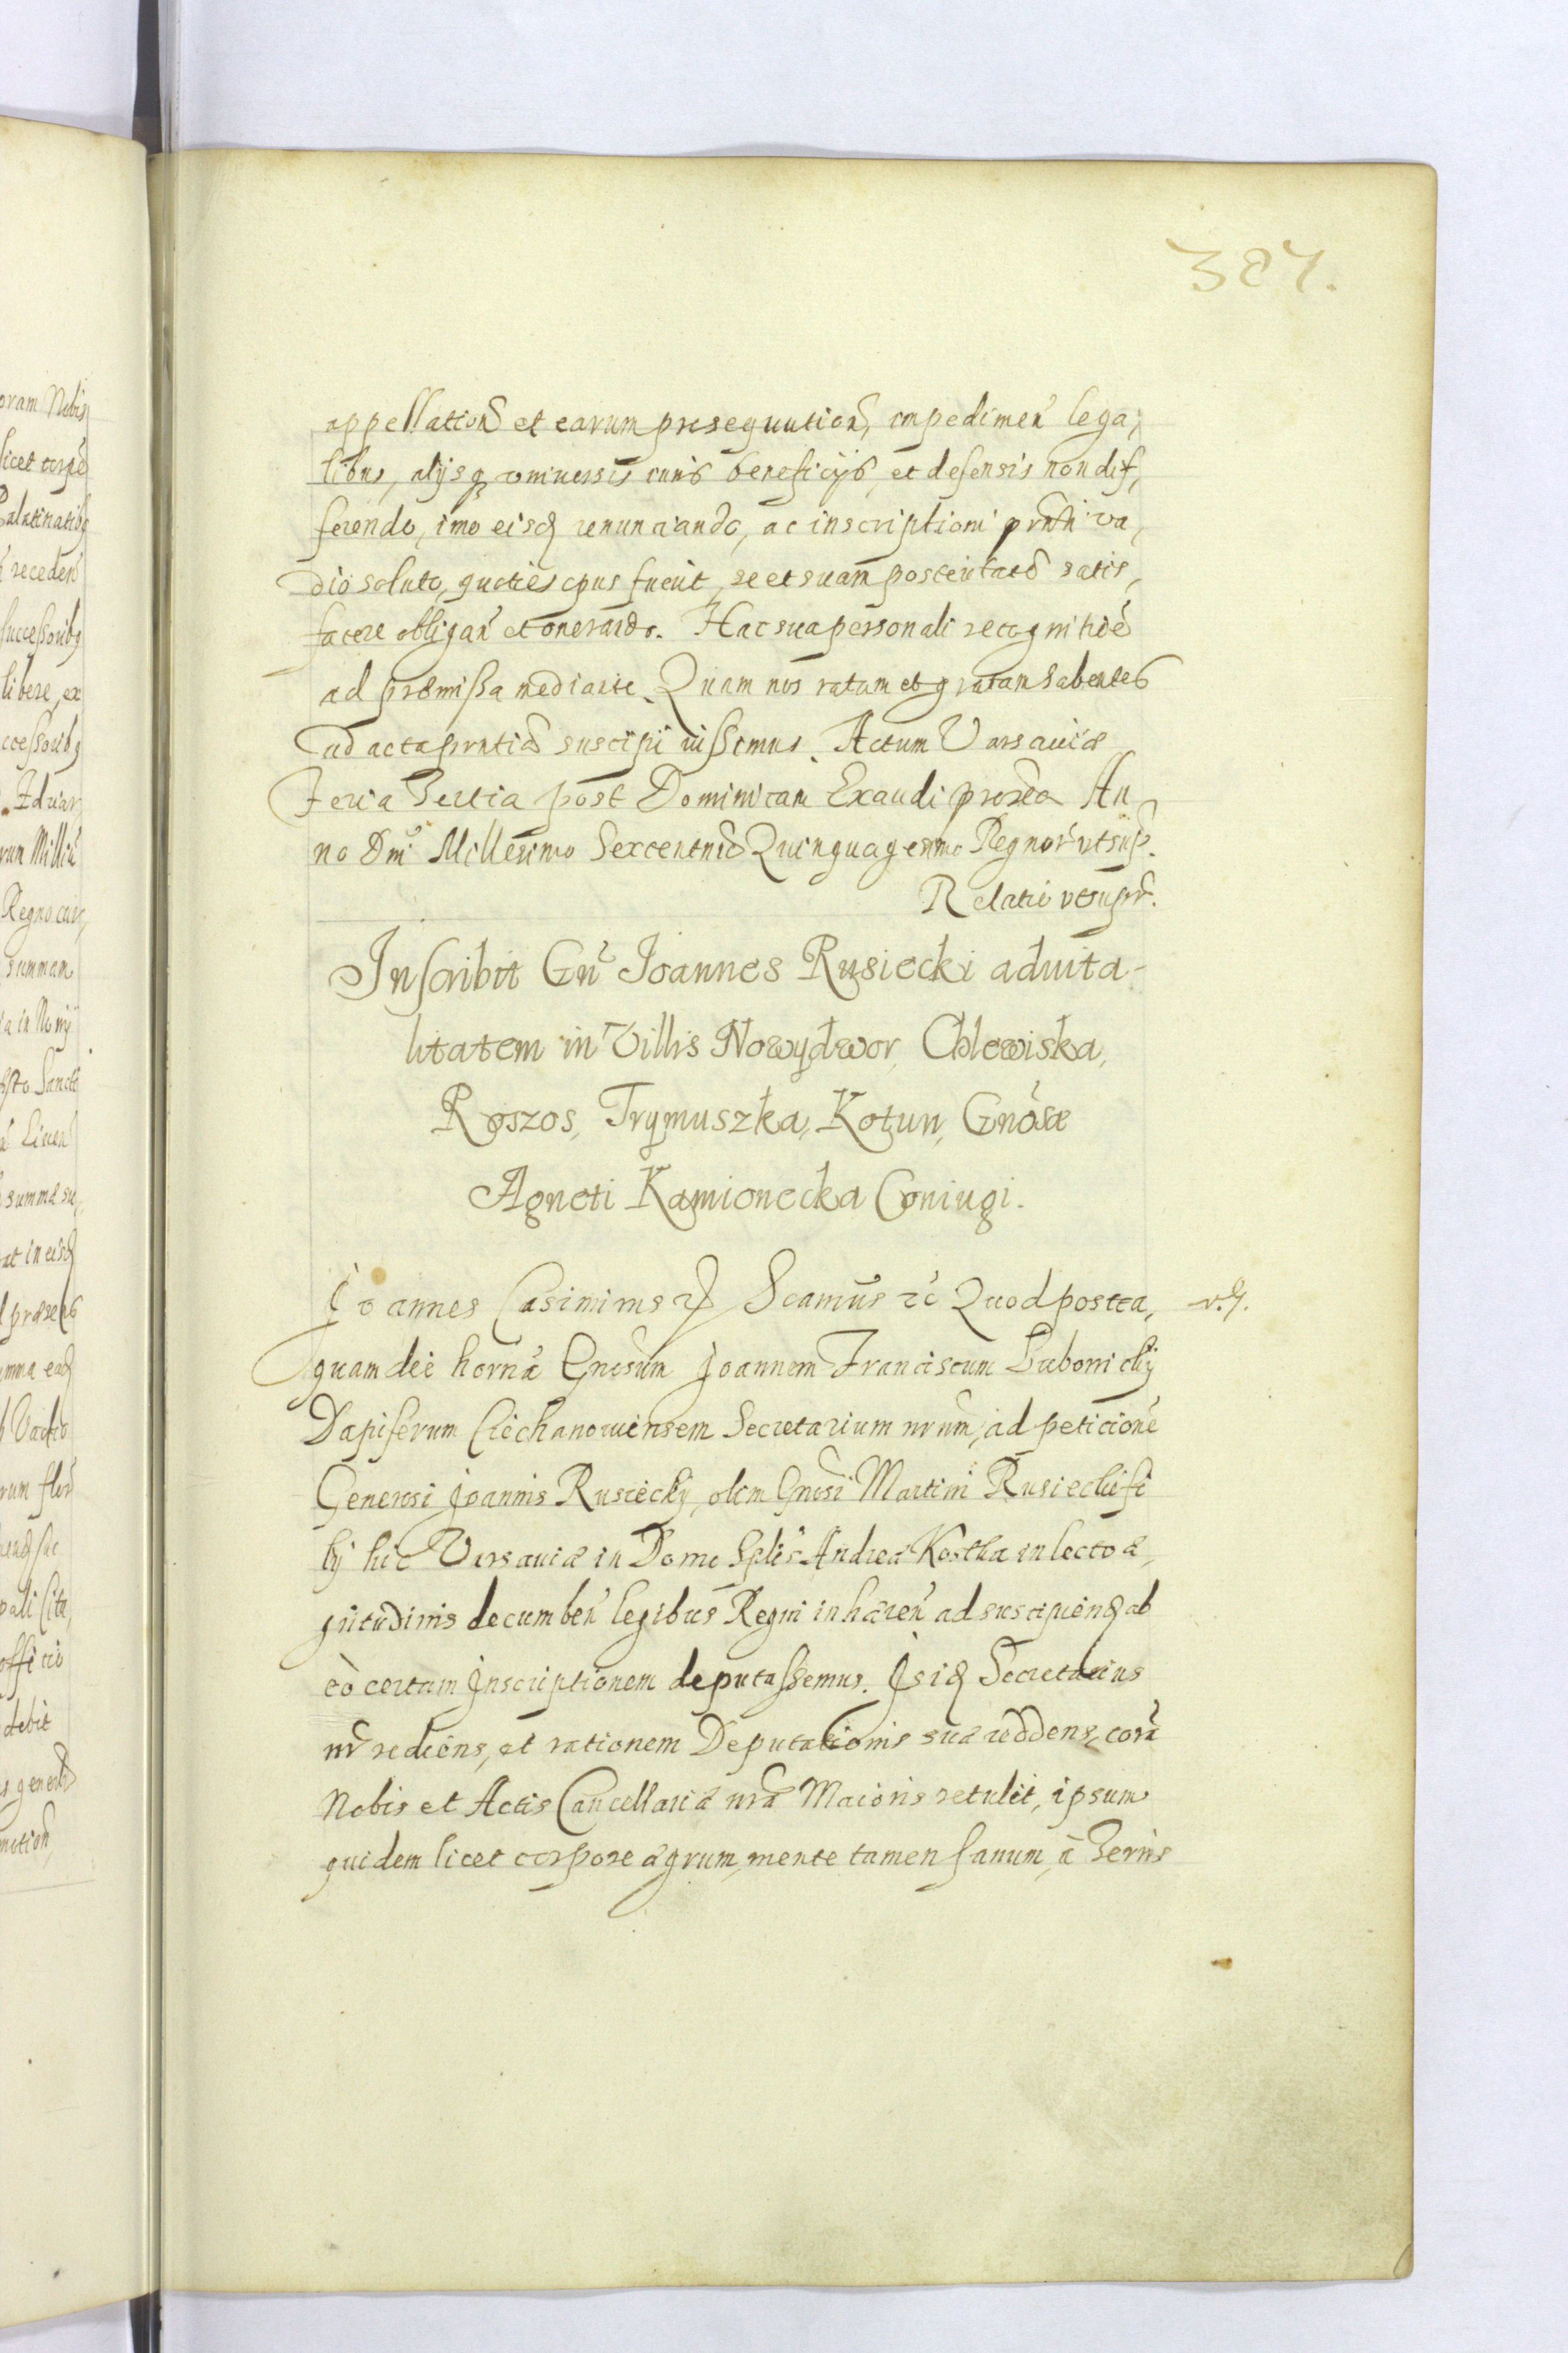 387.
appellationũ et earum prosequutionũ, impedimeñ lega,
libus, alijsq̃ vniuersis iuris beneficijs, et defensis non dif,
ferendo, imo eisq̃ renunciando, ac inscriptioni prñti va,
dio soluto, quoties opus fuerit, se et suam posteritatẽ satis,
facere obligañ et onerando. Hac sua personali recognitiõe
ad præmissa mediante. Quam nos ratam et gratam habentes
ad acta prñtia suscipi iussimus. Actum Varsauiæ
Feria Tertia post Dominicam Exaudi proxa An,
no Dñi Millesimo Sexcentmõ Quinquagesimo Regnoŕ vtsup̃.
Relatio vtsupr̃.
Inscribit Gñ Joannes Rusiecki aduita-
litatem in Villis Nowydwor, Chlewiska,
Roszos, Trymuszka, Kotun, Gnósæ
Agneti Kamionecka Coniugi.
Joannes Casimirus Scamus̃ rč Quod postea,
quam die horna Gnosum Joannem Franciscum Lubonicky
Dapiferum Ciechanouiensem Secretarium nrum, ad peticionẽ
Generosi Joannis Rusiecky, olim Gnosi Martini Rusiecki fi
lij hic Varsauiæ in Domo Splis Andreæ Kostka in lecto æ,
gritudinis decumbeñ legibus Regni inhæreñ ad suscipiend̃ ab
eò certam Inscriptionem deputassemus. Isq̃ Secretarius
nr̃ rediens, et rationem Deputationis suæ reddens, corã
Nobis et Actis Cancellariæ nrã Maioris retulit, ipsum
quidem licet corpore ægrum, mente tamen sanum, à Ternis